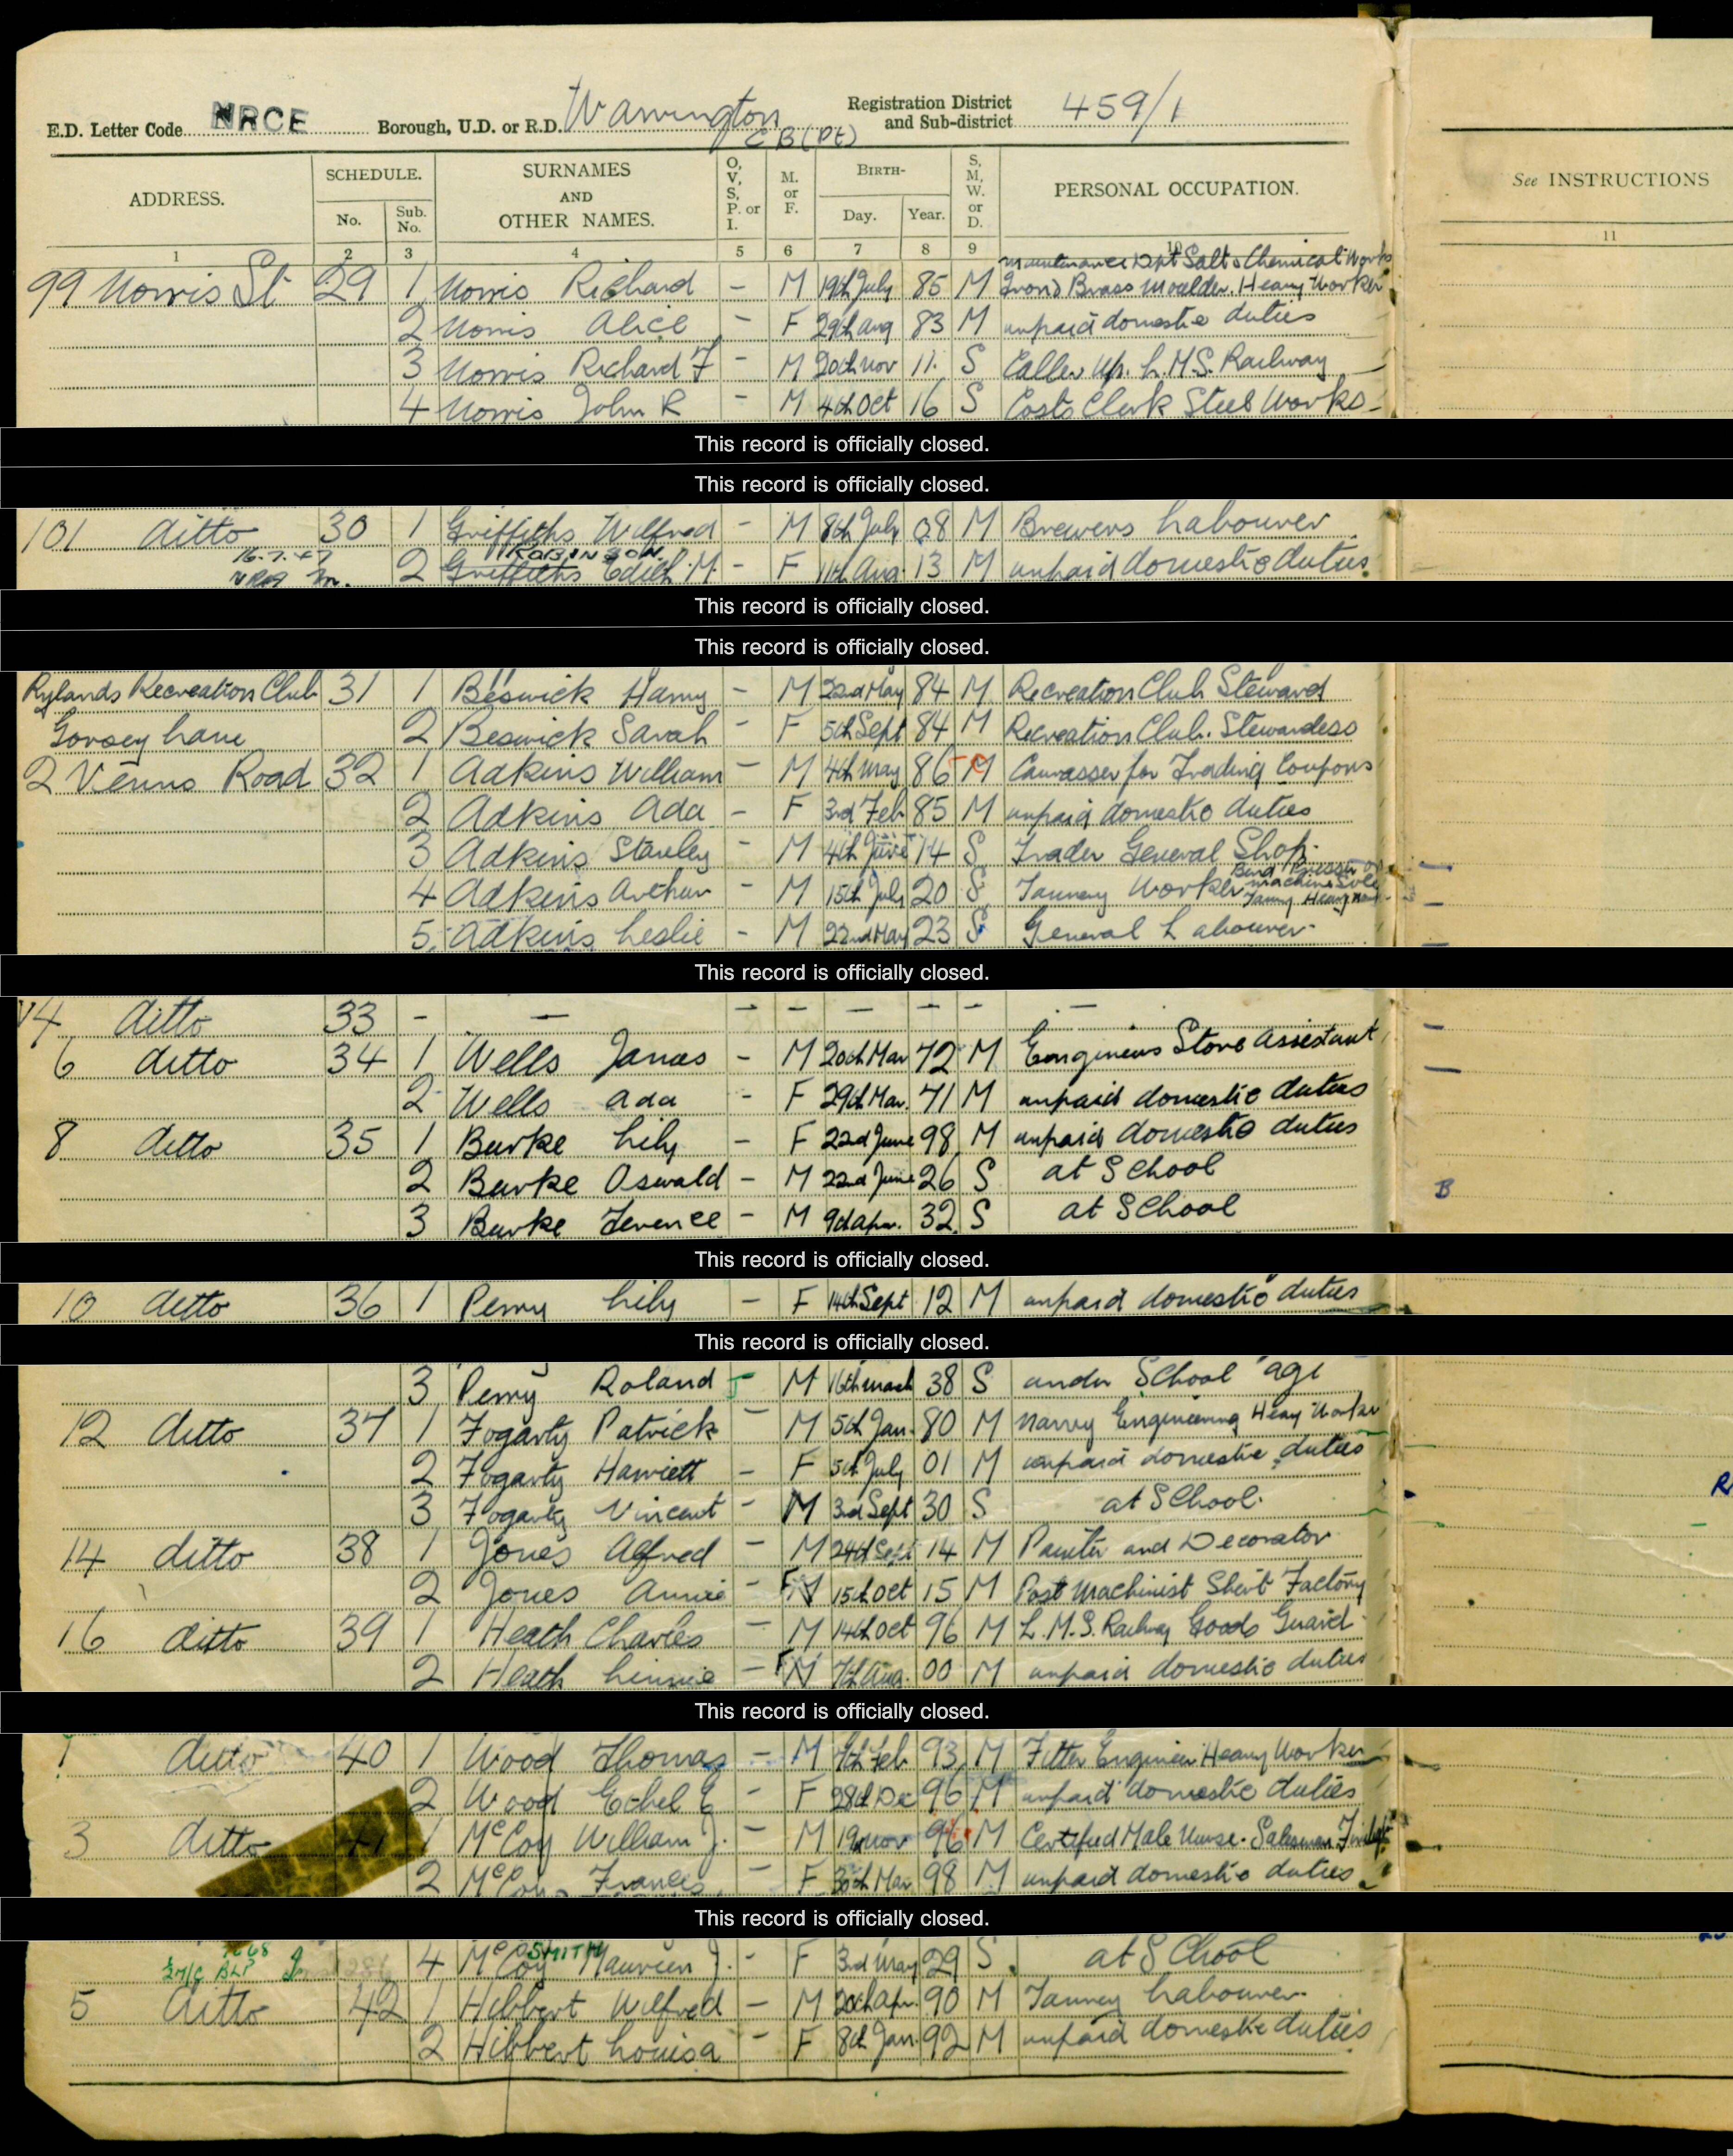 E.D. Letter Code NRCE Borough, U.D. or R.D. Warrington C B (Pt) Registration District and Sub-district 459/1
ADDRESS. SCHEDULE. No. Sub. No. SURNAMES AND OTHER NAMES. O, V, S, P. or I. M. or F. BIRTH- Day. Year. S, M, W. or D. PERSONAL OCCUPATION. See INSTRUCTIONS
1 2 3 4 5 6 7 8 9 10 11
Maintenance Dept Salt & Chemical Works
99 Norris St 29 1 Norris Richard - M 19th July 85 M Iron & Brass Moulder. Heavy Worker
2 Norris Alice - F 29th Aug 83 M unpaid domestic duties
3 Norris Richard F - M 20th Nov 11. S Caller Up. L.M.S. Railway
4 Norris John R - M 4th Oct 16 S Costs Clerk Steel Works
This record is officially closed.
This record is officially closed.
101 ditto 30 1 Griffiths Wilfred - M 8th July 08 M Brewers Labourer
16.7.47 ROBINSON
2 Griffiths Edith M. - F 11th Aug. 13 M unpaid domestic duties
This record is officially closed.
This record is officially closed.
Rylands Recreation Club 31 1 Beswick Harry - M 22nd May 84 M Recreation Club Steward
Gorsey Lane 2 Beswick Sarah - F 5th Sept 84 M Recreation Club. Stewardess
2 Venns Road 32 1 Adkins William - M 4th May 86 M Canvasser for Trading Coupons
2 Adkins Ada - F 3rd Feb 85 M unpaid domestic duties
3 Adkins Stanley - M 4th June 14 S Trader General Shop.
4 Adkins Arthur - M 15th July 20 S Tannery Worker machine
5 Adkins Leslie - M 22nd May 23 S General Labourer
This record is officially closed.
4 ditto 33 - - - - - - - -
6 ditto 34 1 Wells James - M 20th Mar 72 M Engineers Store Assistant
2 Wells Ada - F 29th Mar. 71 M unpaid domestic duties
8 ditto 35 1 Burke Lily - F 22nd June 98 M unpaid domestic duties
2 Burke Oswald - M 22nd June 26 S at School
B
3 Burke Terence - M 9th Apr. 32 S at School
This record is officially closed.
10 ditto 36 1 Perry Lily - F 14th Sept 12 M unpaid domestic duties
This record is officially closed.
3 Perry Roland - M 16th March 38 S under School age
12 ditto 37 1 Fogarty Patrick - M 5th Jan. 80 M Navvy Engineering Heavy Worker
2 Fogarty Harriett - F 5th July 01 M unpaid domestic duties
3 Fogarty Vincent - M 3rd Sept 30 S at School.
14 ditto 38 1 Jones Alfred - M 24th Sept 14 M Painter and Decorator
2 Jones Annie - F 15th Oct 15 M Post Machinist Shirt Factory
16 ditto 39 1 Heath Charles - M 14th Oct 96 M L.M.S. Railway Goods Guard
2 Heath Linnie - F 7th Aug. 00 M unpaid domestic duties
This record is officially closed.
1 ditto 40 1 Wood Thomas - M 7th Feb 93 M Fitter Engineer Heavy Worker
2 Wood Ethel E - F 28th Dec 96 M unpaid domestic duties
3 ditto 41 1 McCoy William J. - M 19 Nov 96 M Certified Male Nurse. Salesman
2 McCoy Frances - F 30th Mar 98 M unpaid domestic duties.
This record is officially closed.
SMITH
4 McCoy Maureen J. - F 3rd May 29 S at School
5 ditto 42 1 Hibbert Wilfred - M 20th Apr. 90 M Tannery Labourer
2 Hibbert Louisa - F 8th Jan. 92 M unpaid domestic duties